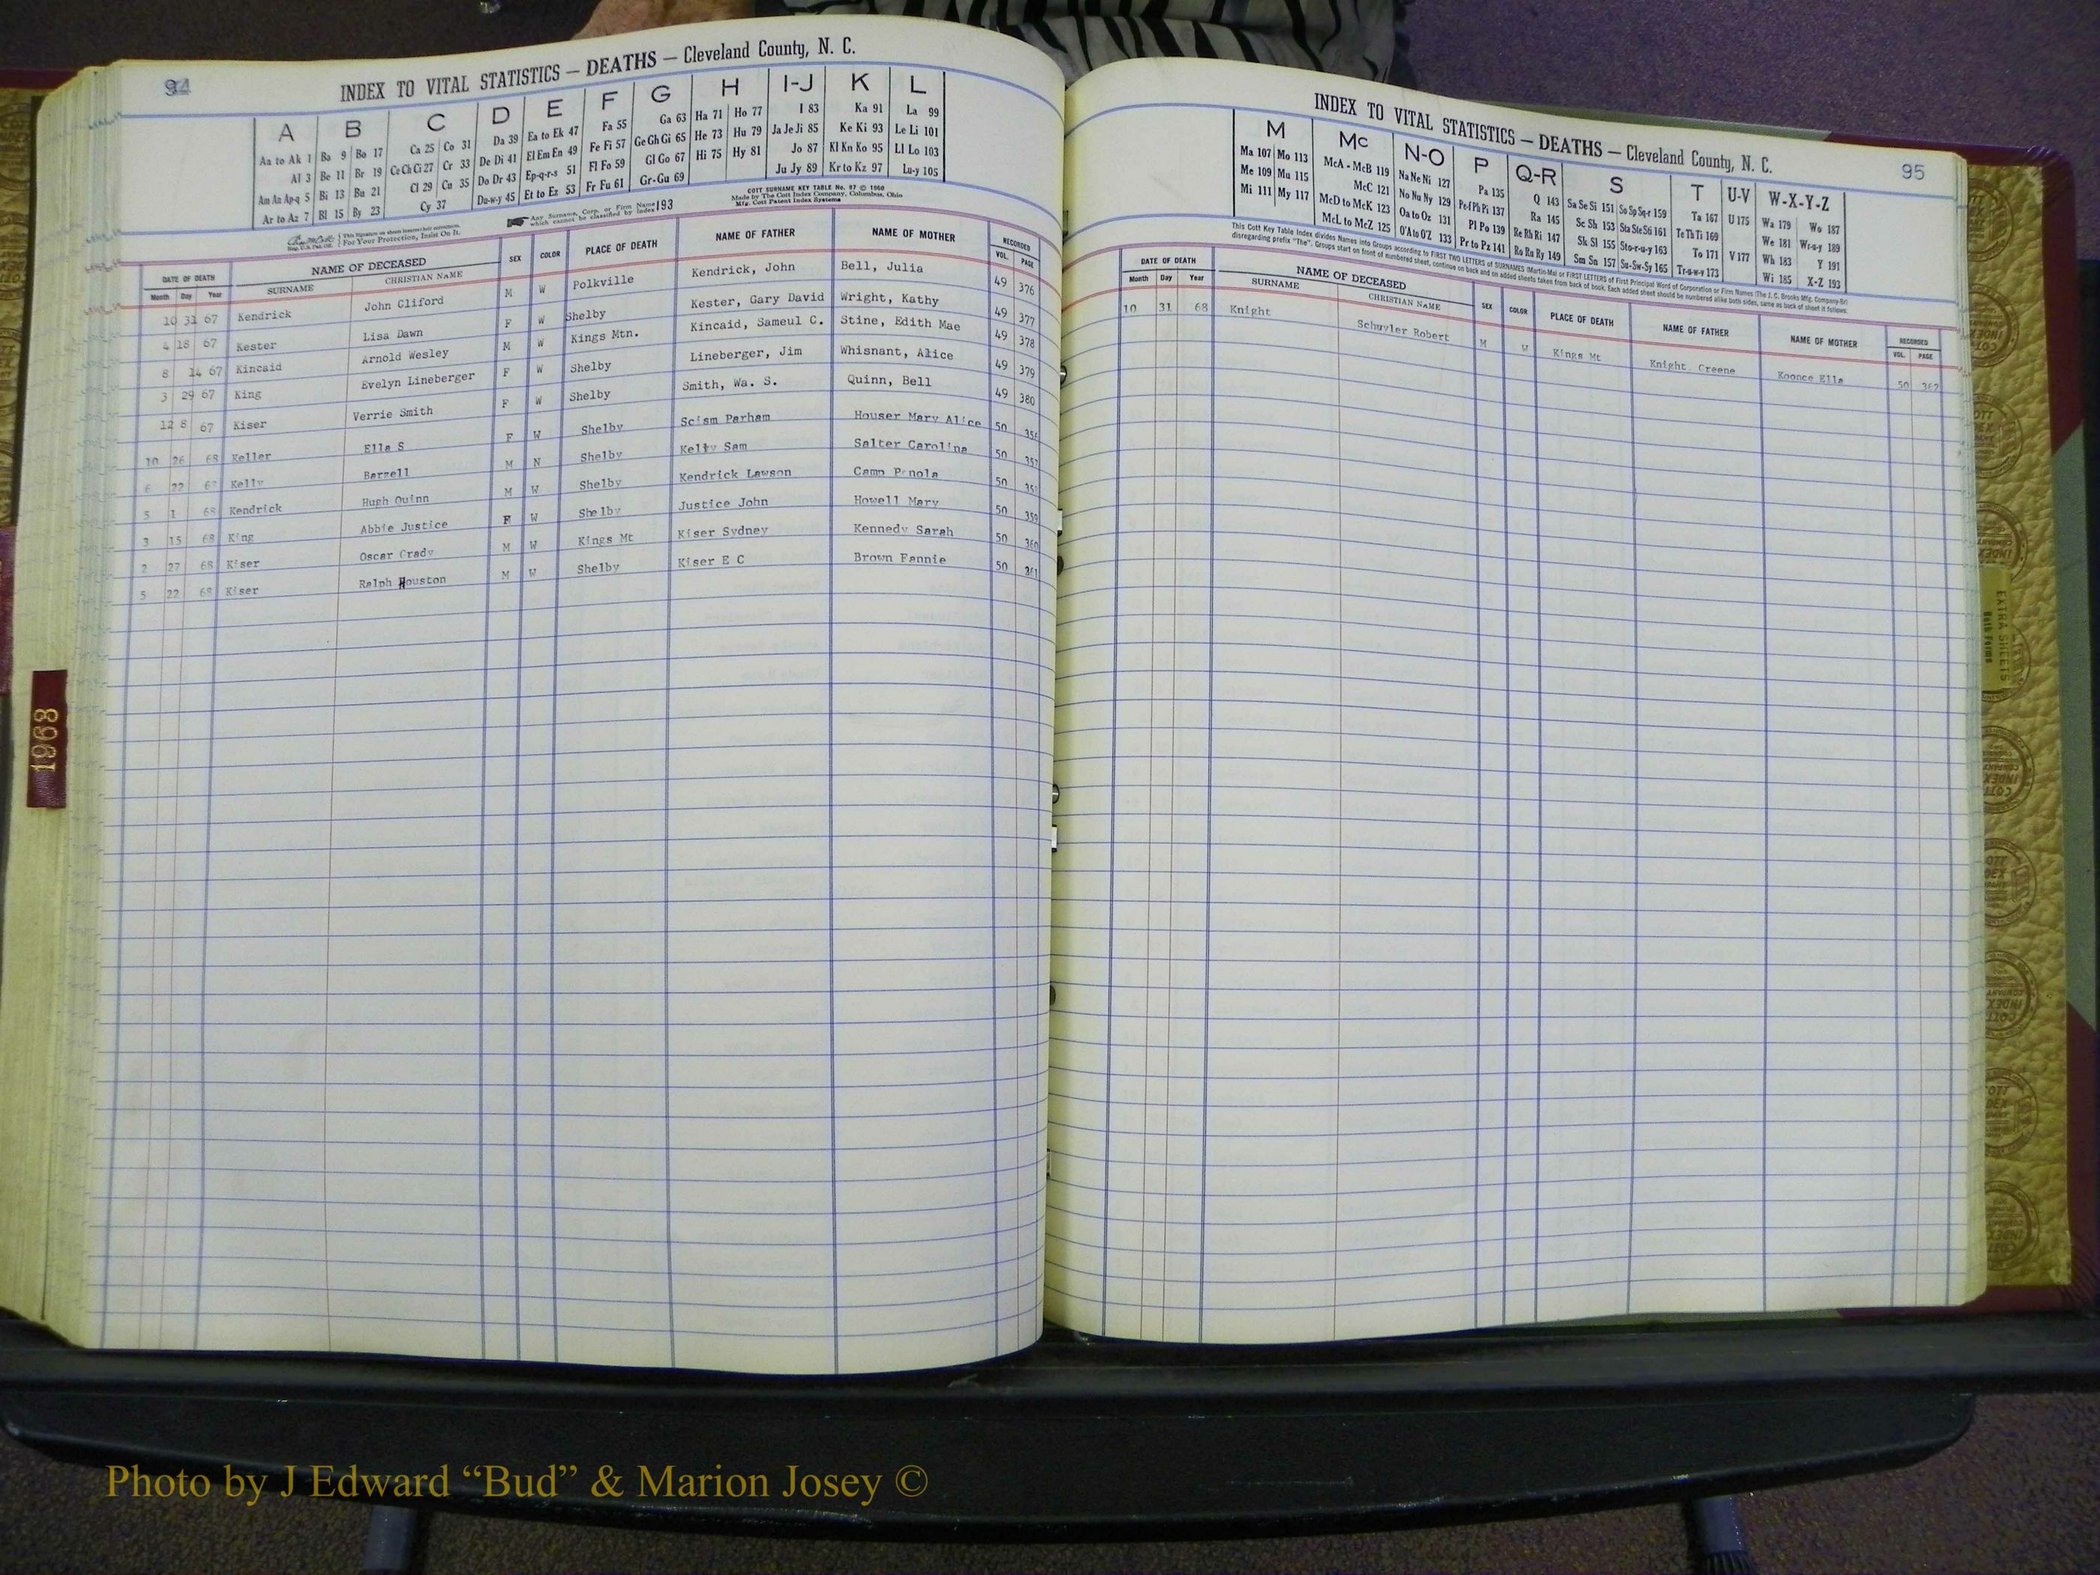 94
INDEX TO VITAL STATISTICS — DEATHS — Cleveland County, N. C.
A B C D E F G H I-J K L
Aa to Ak 1 Ba 9 Bo 17 Ca 25 Co 31 Da 39 Ea to Ek 47 Fa 55 Ga 63 Ha 71 Ho 77 I 83 Ka 91 La 99
Al 3 Be 11 Br 19 Ce Ch Ci 27 Cr 33 De Di 41 El Em En 49 Fe Fi 57 Ge Gh Gi 65 He 73 Hu 79 Ja Je Ji 85 Ke Ki 93 Le Li 101
Am An Ap-q 5 Bi 13 Bu 21 Cl 29 Cu 35 Do Dr 43 Ep-q-r-s 51 Fl Fo 59 Gl Go 67 Hi 75 Hy 81 Jo 87 Kl Kn Ko 95 Ll Lo 103
Ar to Az 7 Bl 15 By 23 Cy 37 Du-w-y 45 Et to Ez 53 Fr Fu 61 Gr-Gu 69 Ju Jy 89 Kr to Kz 97 Lu-y 105
COTT SURNAME KEY TABLE No. 97 © 1960
Made by The Cott Index Company, Columbus, Ohio
Mfg. Cott Patent Index Systems
This Signature on sheets insures their correctness.
For Your Protection, Insist On It.
Any Surname, Corp. or Firm Name which cannot be classified by Index 193
DATE OF DEATH NAME OF DECEASED SEX COLOR PLACE OF DEATH NAME OF FATHER NAME OF MOTHER RECORDED
Month Day Year SURNAME CHRISTIAN NAME VOL. PAGE
10 31 67 Kendrick John Cliford M W Polkville Kendrick, John Bell, Julia 49 376
4 18 67 Kester Lisa Dawn F W Shelby Kester, Gary David Wright, Kathy 49 377
8 14 67 Kincaid Arnold Wesley M W Kings Mtn. Kincaid, Sameul C. Stine, Edith Mae 49 378
3 29 67 King Evelyn Lineberger F W Shelby Lineberger, Jim Whisnant, Alice 49 379
12 8 67 Kiser Verrie Smith F W Shelby Smith, Wa. S. Quinn, Bell 49 380
10 26 68 Keller Ella S F W Shelby Scism Parham Houser Mary Alice 50 356
6 22 68 Kelly Barzell M N Shelby Kelly Sam Salter Carolina 50 357
5 1 68 Kendrick Hugh Quinn M W Shelby Kendrick Lawson Camp Penola 50 358
3 15 68 King Abbie Justice F W Shelby Justice John Howell Mary 50 359
2 27 68 Kiser Oscar Grady M W Kings Mt Kiser Sydney Kennedy Sarah 50 360
5 22 68 Kiser Ralph Houston M W Shelby Kiser E C Brown Fannie 50 361
1968
95
INDEX TO VITAL STATISTICS — DEATHS — Cleveland County, N. C.
M Mc N-O P Q-R S T U-V W-X-Y-Z
Ma 107 Mo 113 McA - McB 119 Na Ne Ni 127 Pa 135 Q 143 Sa Se Si 151 So Sp Sq-r 159 Ta 167 U 175 Wa 179 Wo 187
Me 109 Mu 115 McC 121 No Nu Ny 129 Pe-f Ph Pi 137 Ra 145 Sc Sh 153 Sta Ste Sti 161 Te Th Ti 169 V 177 We 181 Wr-u-y 189
Mi 111 My 117 McD to McK 123 Oa to Oz 131 Pl Po 139 Re Rh Ri 147 Sk Sl 155 Sto-r-u-y 163 To 171 Wh 183 Y 191
McL to McZ 125 O'A to O'Z 133 Pr to Pz 141 Ro Ru Ry 149 Sm Sn 157 Su-Sw-Sy 165 Tr-u-w-y 173 Wi 185 X-Z 193
This Cott Key Table Index divides Names into Groups according to FIRST TWO LETTERS of SURNAMES (Martin-Ma) or FIRST LETTERS of First Principal Word of Corporation or Firm Names (The J. C. Brooks Mfg. Company-Br)
disregarding prefix "The". Groups start on front of numbered sheet, continue on back and on added sheets taken from back of book. Each added sheet should be numbered alike both sides, same as back of sheet it follows.
DATE OF DEATH NAME OF DECEASED SEX COLOR PLACE OF DEATH NAME OF FATHER NAME OF MOTHER RECORDED
Month Day Year SURNAME CHRISTIAN NAME VOL. PAGE
10 31 68 Knight Schuyler Robert M W Kings Mt Knight Greene Koonce Ella 50 362
EXTRA SHEETS
Both Forms
Photo by J Edward “Bud” & Marion Josey ©